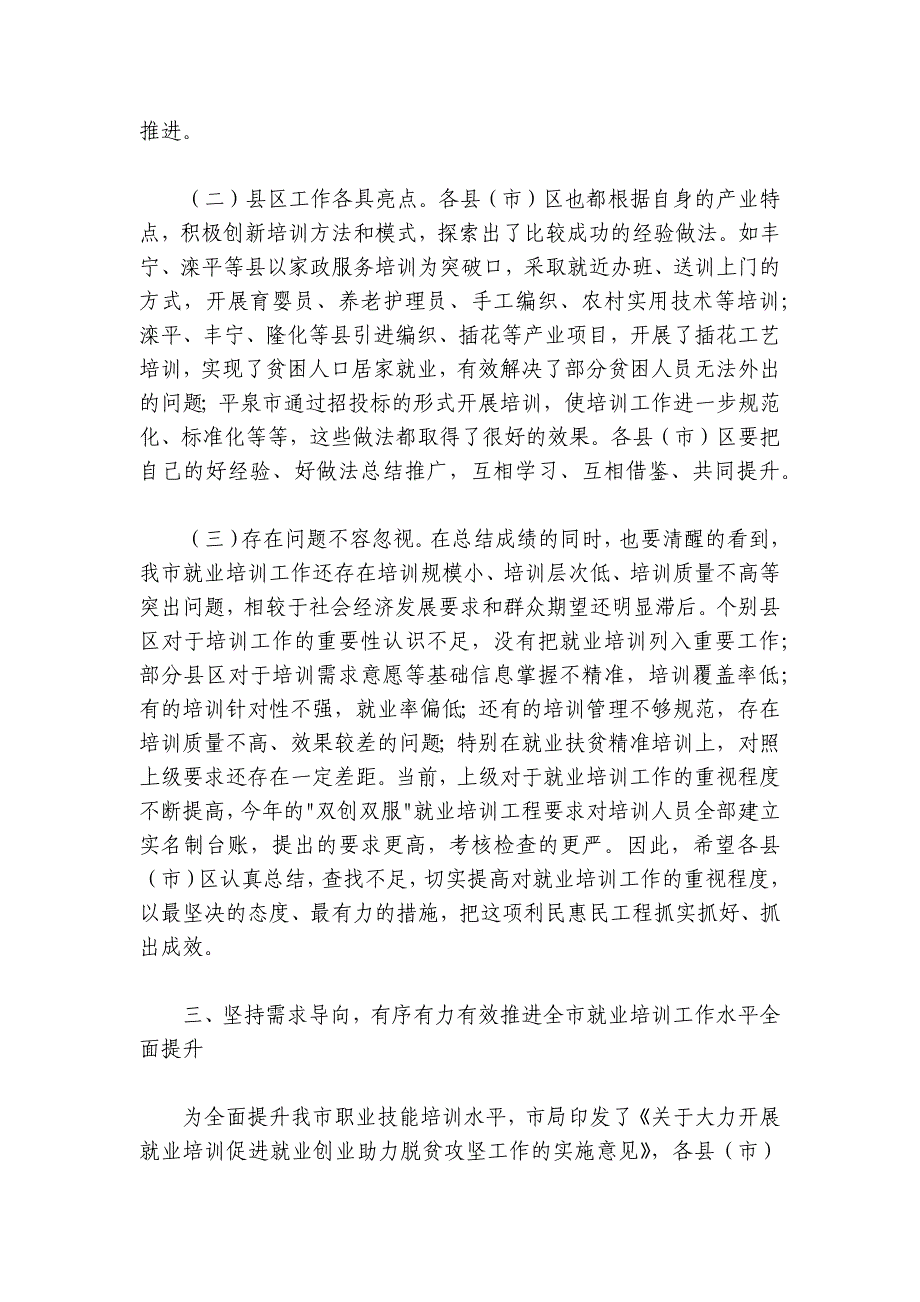 推进。
（二）县区工作各具亮点。各县（市）区也都根据自身的产业特
点，积极创新培训方法和模式，探索出了比较成功的经验做法。如丰
宁、滦平等县以家政服务培训为突破口，采取就近办班、送训上门的
方式，开展育婴员、养老护理员、手工编织、农村实用技术等培训；
滦平、丰宁、隆化等县引进编织、插花等产业项目，开展了插花工艺
培训，实现了贫困人口居家就业，有效解决了部分贫困人员无法外出
的问题；平泉市通过招投标的形式开展培训，使培训工作进一步规范
化、标准化等等，这些做法都取得了很好的效果。各县（市）区要把
自己的好经验、好做法总结推广，互相学习、互相借鉴、共同提升。
（三）存在问题不容忽视。在总结成绩的同时，也要清醒的看到，
我市就业培训工作还存在培训规模小、培训层次低、培训质量不高等
突出问题，相较于社会经济发展要求和群众期望还明显滞后。个别县
区对于培训工作的重要性认识不足，没有把就业培训列入重要工作；
部分县区对于培训需求意愿等基础信息掌握不精准，培训覆盖率低；
有的培训针对性不强，就业率偏低；还有的培训管理不够规范，存在
培训质量不高、效果较差的问题；特别在就业扶贫精准培训上，对照
上级要求还存在一定差距。当前，上级对于就业培训工作的重视程度
不断提高，今年的"双创双服"就业培训工程要求对培训人员全部建立
实名制台账，提出的要求更高，考核检查的更严。因此，希望各县
（市）区认真总结，查找不足，切实提高对就业培训工作的重视程度，
以最坚决的态度、最有力的措施，把这项利民惠民工程抓实抓好、抓
出成效。
三、坚持需求导向，有序有力有效推进全市就业培训工作水平全
面提升
为全面提升我市职业技能培训水平，市局印发了《关于大力开展
就业培训促进就业创业助力脱贫攻坚工作的实施意见》，各县（市）